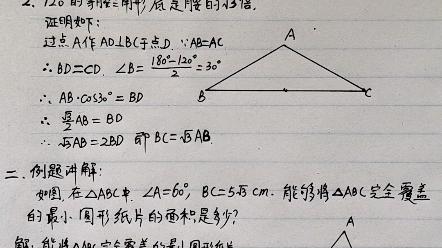 2. 120°的等腰三角形底是腰的√3倍.
证明如下:
过点A作AD⊥BC于点D. ∵AB=AC
∴BD=CD, ∠B=(180°-120°)/2=30°
∴ AB·cos30°=BD
∴ √3/2 AB=BD
∴ √3AB=2BD 即BC=√3AB.
A
B
C
二、例题讲解:
如图, 在△ABC中, ∠A=60°, BC=5√3 cm. 能够将△ABC完全覆盖
的最小圆形纸片的面积是多少?
A
解: 能将△ABC完全覆盖的最小圆形纸片